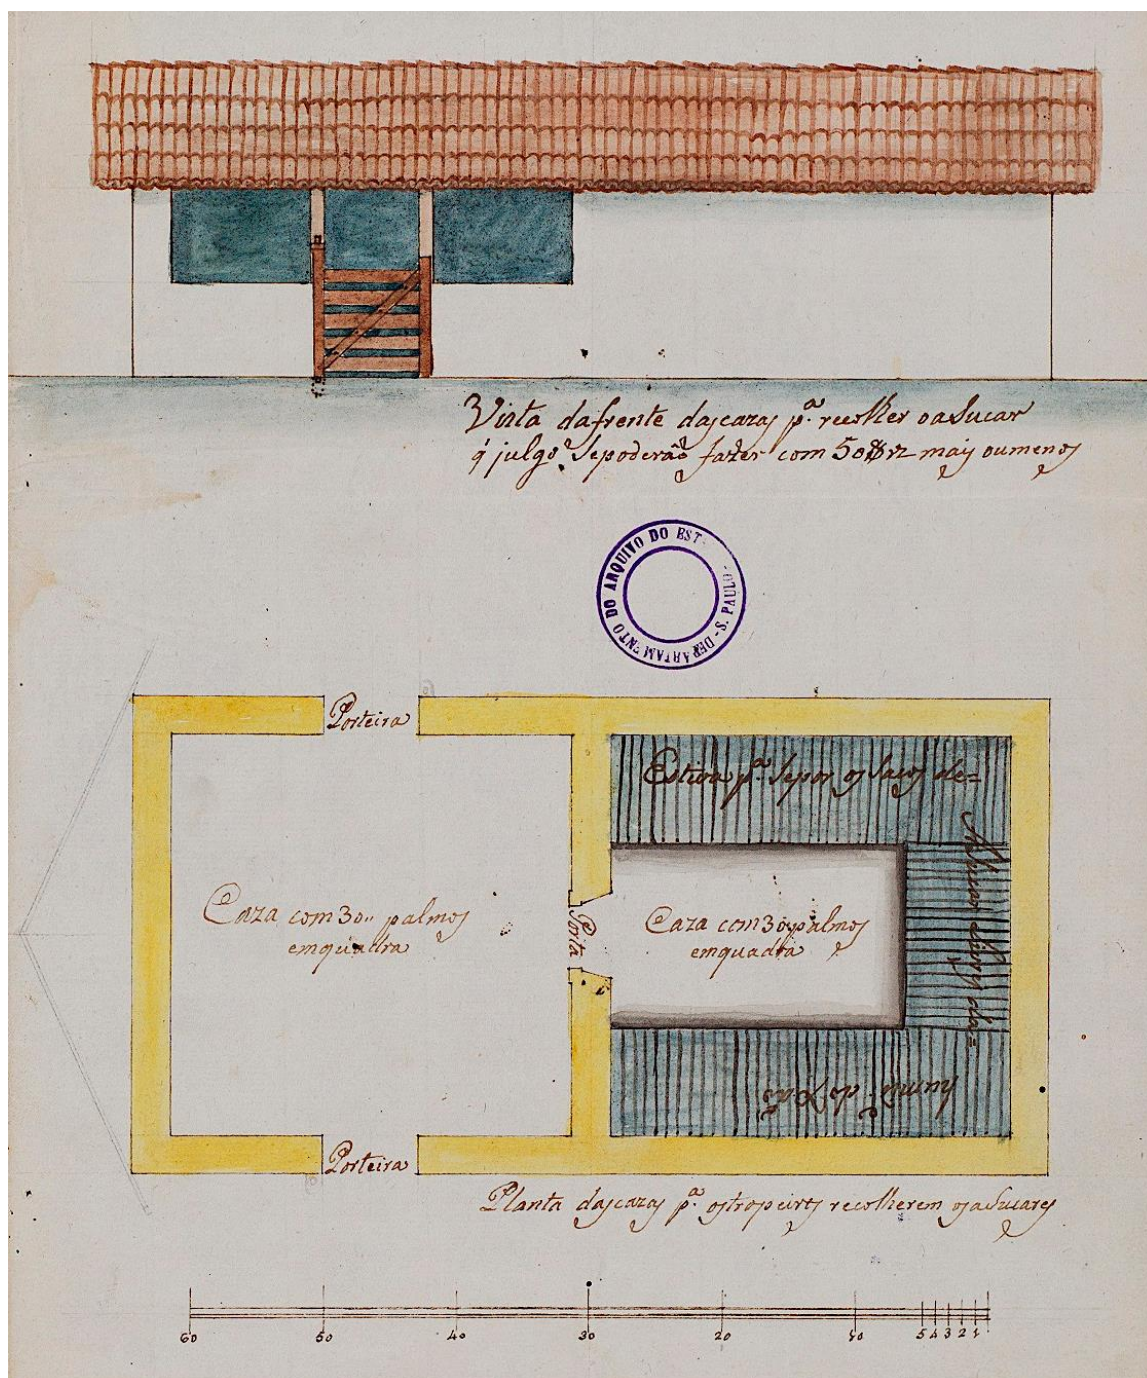 Vista dafrente dascazas p.ª recolher oasucar
q̃ julgo Sepoderaõ fazer com 50$rz mais oumenos
DEPARTAMENTO DO ARQUIVO DO EST - S. PAULO -
Porteira
Estiva p.ª Sepor os Sacos de=
Caza com 30,, palmos
emquadra
Porta
Caza com 30,, palmos
emquadra
Asucar
humid.ᵉ do Xaõ
Porteira
Planta dascazas p.ª ostropeiros recolherem osasucares
60 50 40 30 20 10 5 4 3 2 1